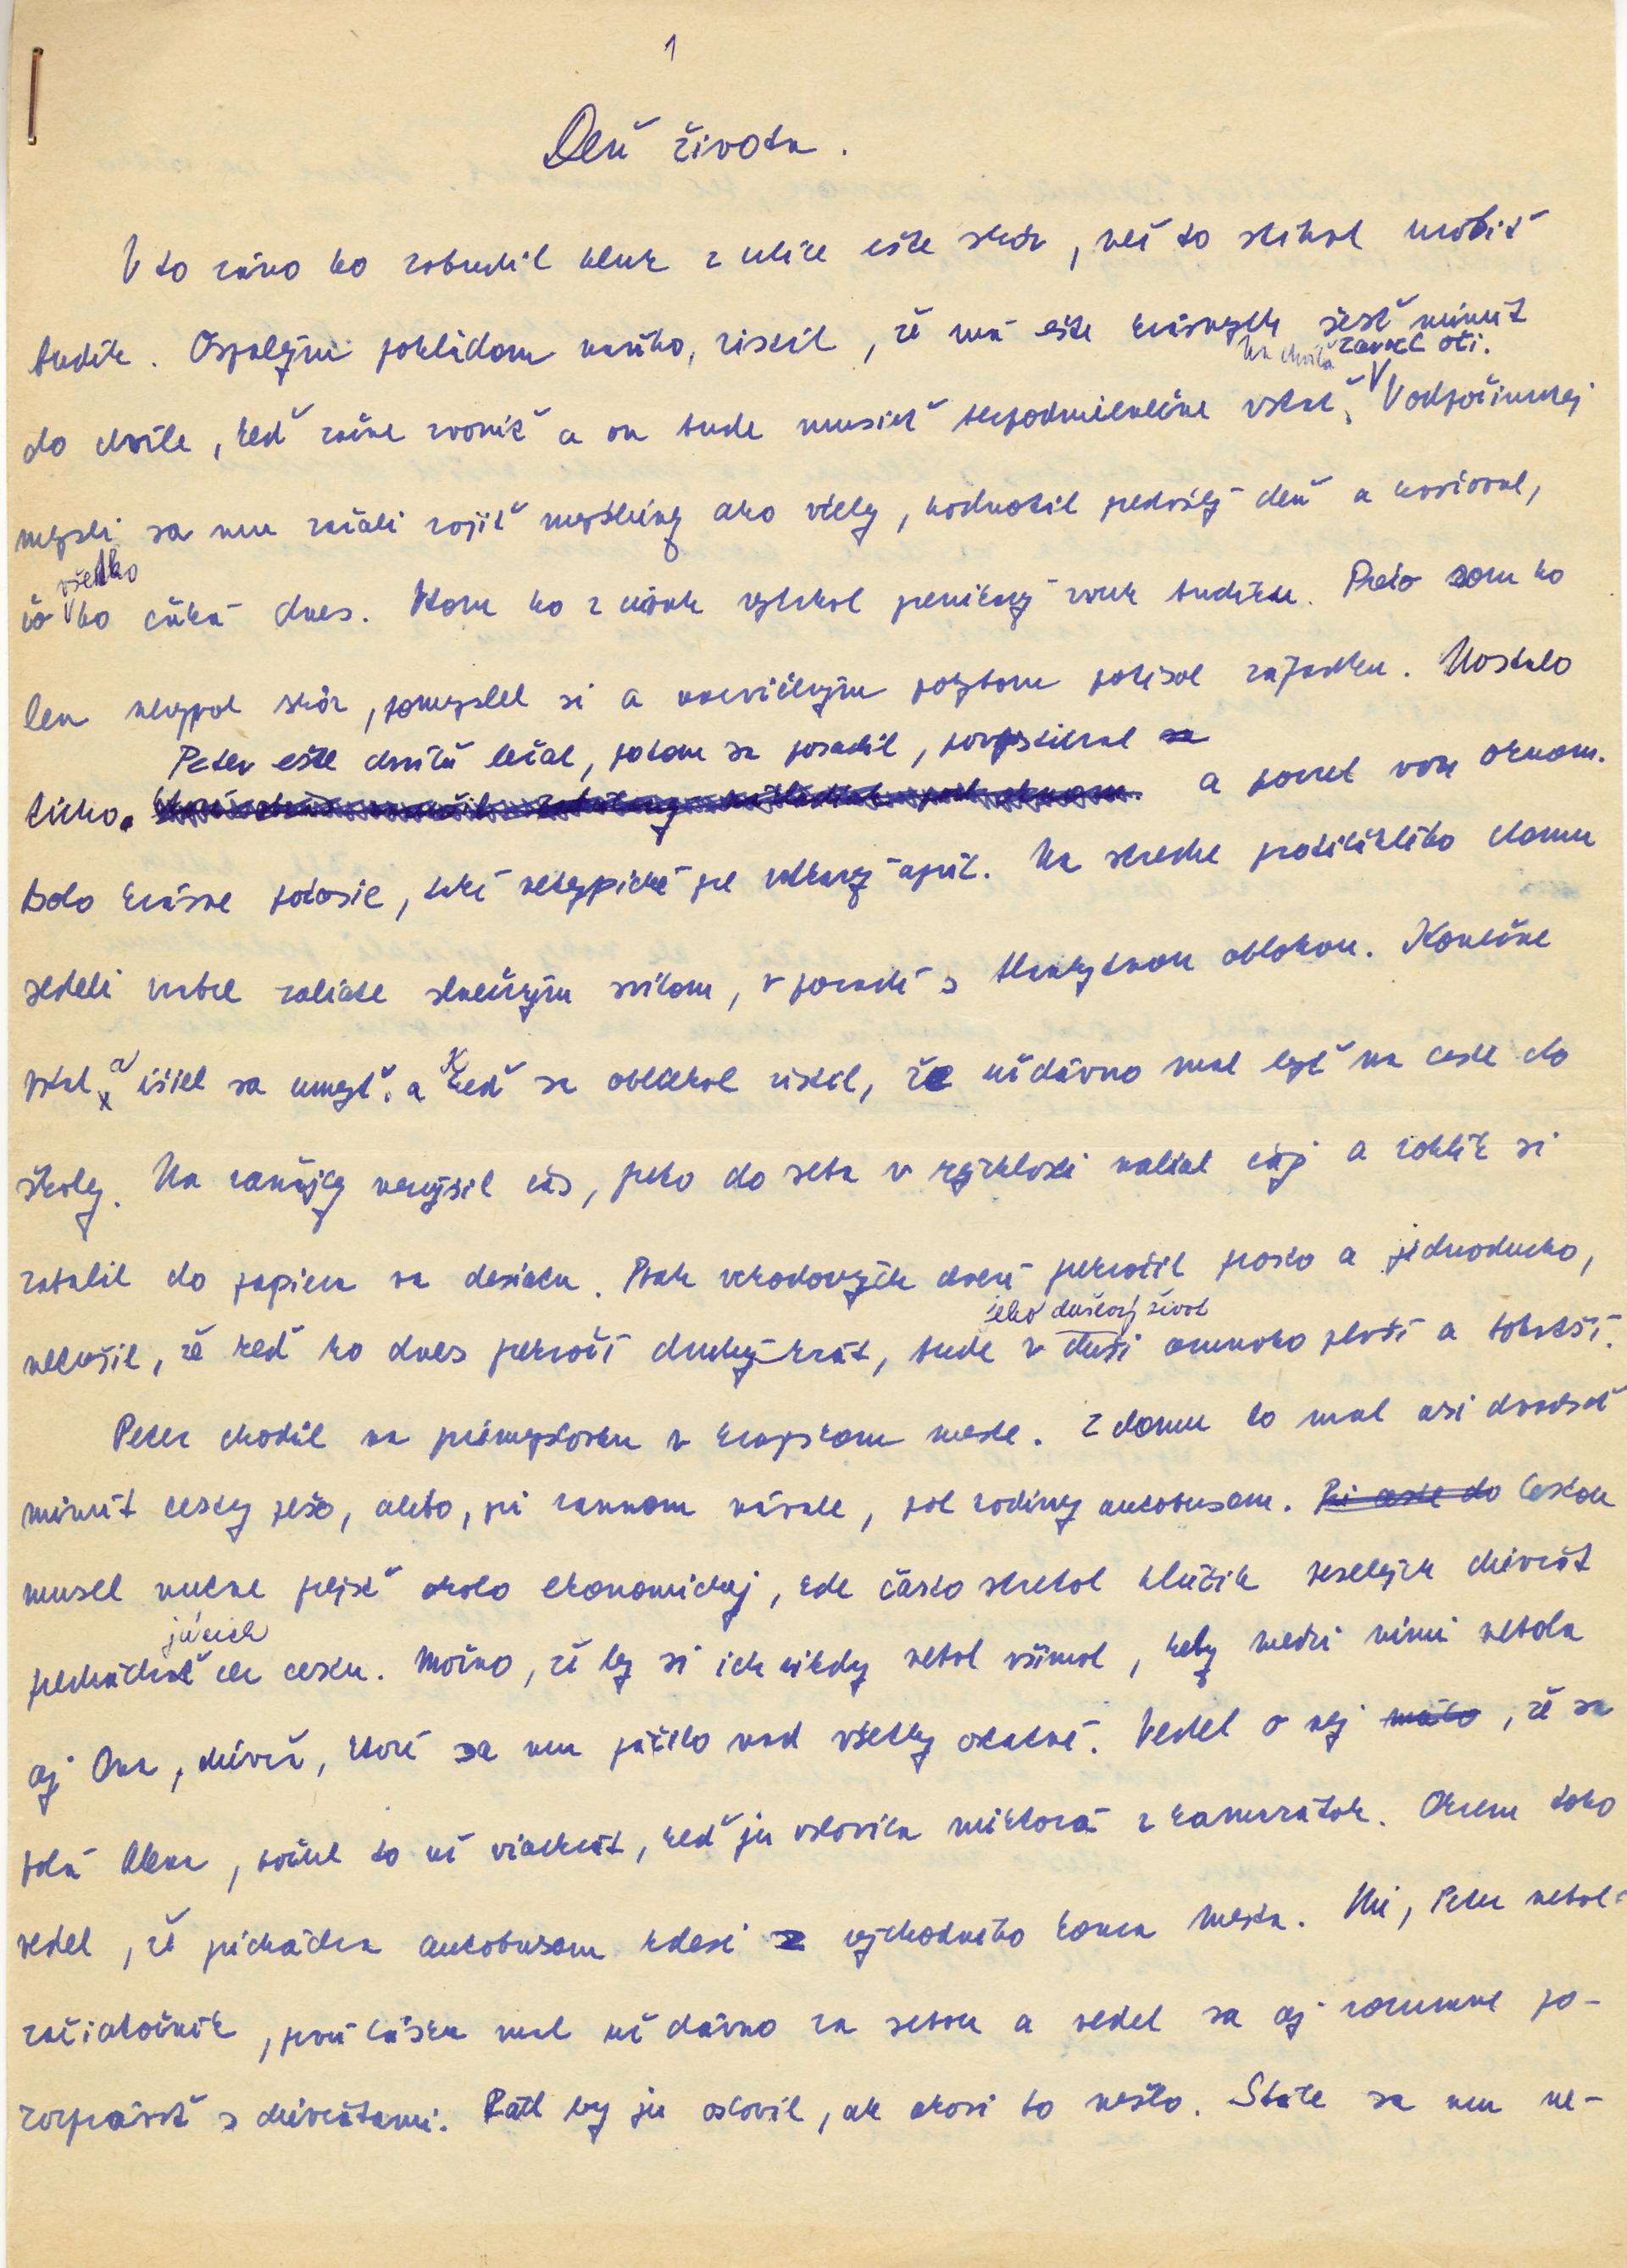 1
Deň života.
V to ráno ho zobudil hluk z ulice ešte skôr, než to stihol urobiť
budík. Ospalým pohľadom naňho, zistil, že má ešte krásnych šesť minút
na chvíľu zavrel oči.
do chvíle, keď začne zvoniť a on bude musieť bezpodmienečne vstať. V odpočinutej
mysli sa mu začali rojiť myšlienky ako včely, hodnotil predošlý deň a
všetko
čo ho čaká dnes. Vtom ho z úvah vytrhol prenikavý zvuk budíku. Prečo som ho
len nevypol skôr, pomyslel si a nacvičeným pohybom potisol západku. Nastalo
Peter ešte chvíľu ležal, potom sa posadil, ponaťahoval sa
ticho. a pozrel von oknom.
Bolo krásne počasie, také netypické pre vrtkavý apríl. Na streche protiľahlého domu
sedeli vrabce zaliate slnečným svitom, v pozadí s blankytnou oblohou. Konečne
vstal a išiel sa umyť. a Keď sa obliekol zistil, že už dávno mal byť na ceste do
školy. Na raňajky nezvýšil čas, preto do seba v rýchlosti nalial čaj a rohlík si
zabalil do papiera na desiatu. Prah vchodových dverí prekročil prosto a jednoducho,
jeho duševný život
netušiac, že keď ho dnes prekročí druhý krát, bude v duši omnoho plnší a bohatší.
Peter chodil na priemyslovku v krajskom meste. Z domu to mal asi dvadsať
minút cesty pešo, alebo, pri rannom návale, pol hodiny autobusom. Pri ceste do Cestou
musel nutne prejsť okolo ekonomickej, kde často stretol hlúčik veselých dievčat
júcich
prechádzať cez cestu. Možno, že by si ich nikdy nebol všimol, keby medzi nimi nebola
aj Ona, dievča, ktoré sa mu páčilo nad všetky ostatné. Vedel o nej málo, že sa
volá Alena, počul to už viackrát, keď ju oslovila niektorá z kamarátok. Okrem toho
vedel, že prichádza autobusom kdesi z východného konca mesta. Nie, Peter nebol
začiatočník, prvú lásku mal už dávno za sebou a vedel sa aj rozumne po-
rozprávať s dievčatami. Rád by ju oslovil, ale akosi to nešlo. Stále sa mu ne-